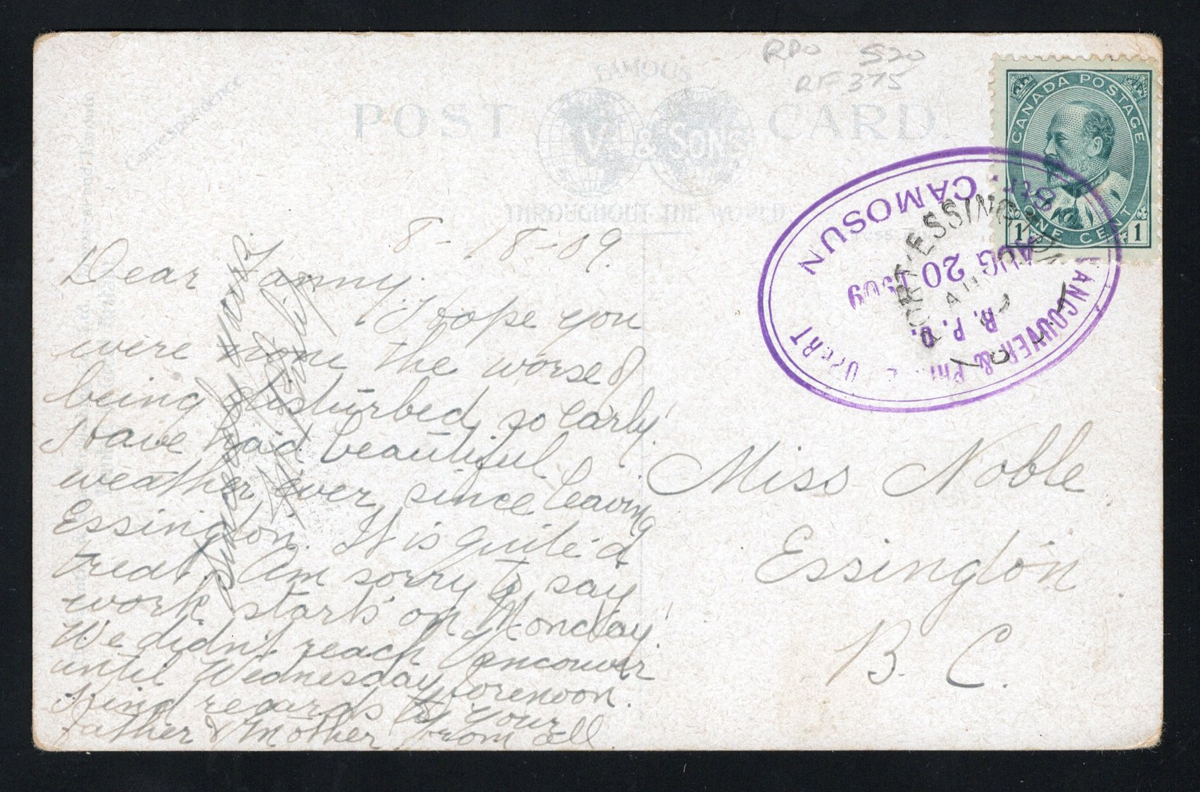 RPO S20
RF375
FAMOUS
POST CARD
V. & SONS
THROUGHOUT THE WORLD
Correspondence
CANADA POSTAGE
1 ONE CENT 1
Str. CAMOSUN
AUG 20 1909
R. P. O.
VANCOUVER &
PORT ESSINGTON
8-18-09.
Dear Fanny.
I hope you
were none the worse of
being disturbed so early.
Have had beautiful
weather ever since leaving
Essington. It is quite a
treat. Am sorry to say
work starts on Monday
We didn't reach Vancouver
until Wednesday forenoon.
Kind regards to your
father & mother from all.
Sincerely yours
Miss Noble
Essington
B. C.